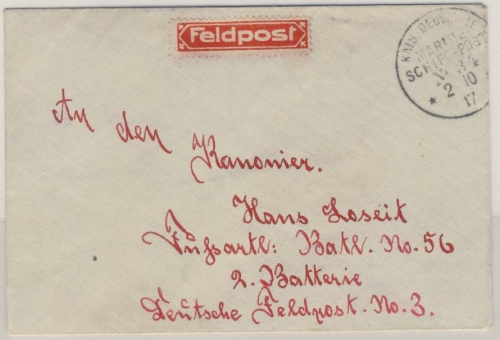 Feldpost
KAIS. DEUTSCHE
MARINE
SCHIFFSPOST
No 34
* 2 10 *
17
An den
Kanonier.
Hans Loseit
Fußsartl: Batl. No. 56
2. Batterie
Deutsche Feldpost. No. 3.